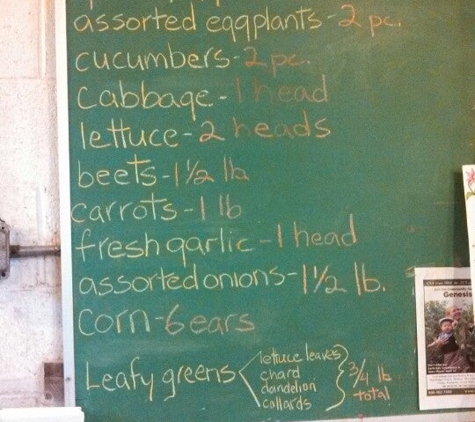 assorted eggplants-2 pc.
cucumbers-2 pc.
cabbage-1 head
lettuce-2 heads
beets-1 1/2 lb
carrots-1 lb
fresh garlic-1 head
assorted onions-1 1/2 lb.
corn-6 ears
Leafy greens
lettuce leaves
chard
dandelion
collards
3/4 lb
total
Genesis